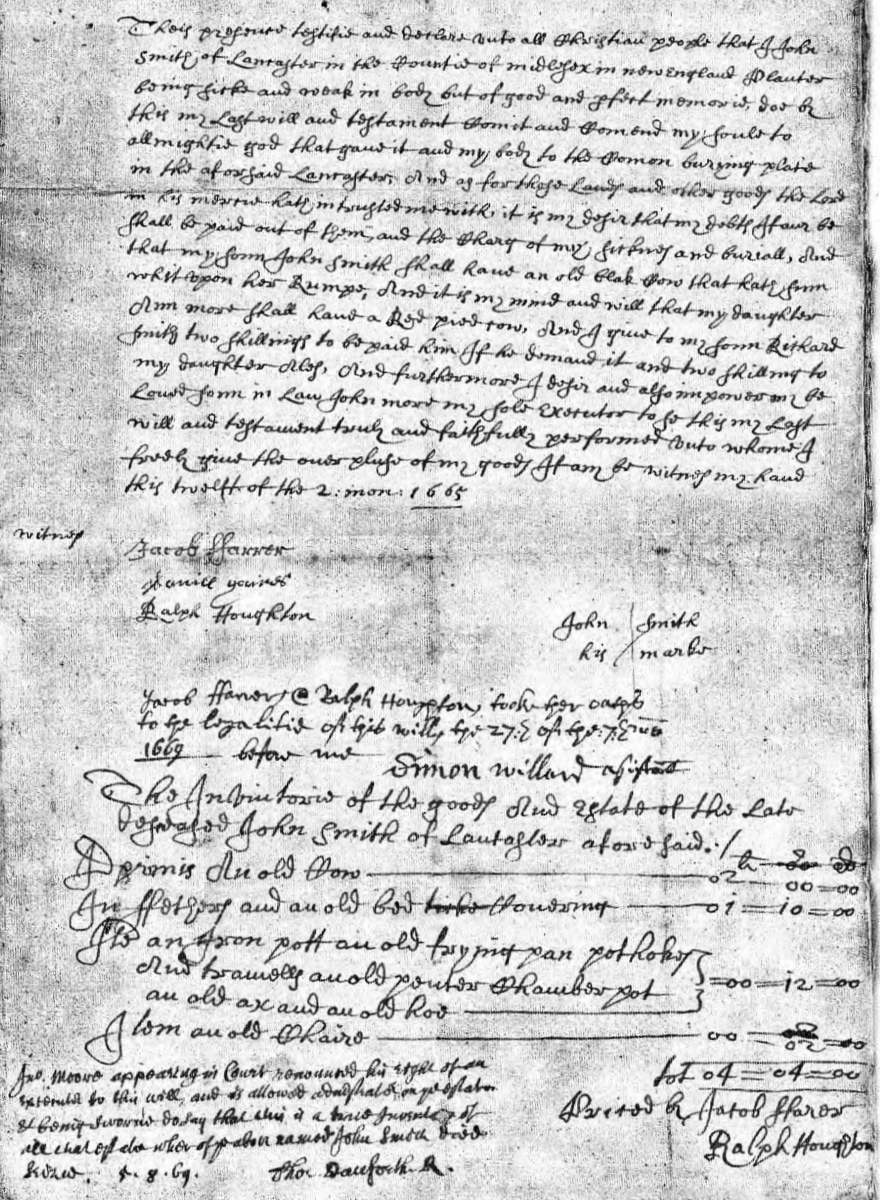 Theis presence testifie and declare unto all Christian people that I John
Smith of Lancaster in the Countie of midlesex in new England Planter
being sicke and weak in body but of good and pfect memorie, doe by
this my Last will and testament Comit and Comend my soule to
allmightie god that gave it and my body to the Comon burying place
in the aforsaid Lancaster, And as for those Lands and other goods the Lord
in his mercie hath intrusted me with, it is my desir that my debts If any be
shall be paid out of them, and the Charg of my sicknes and buriall, And
that my sonn John Smith shall have an old blak Cow that hath som
whit upon her Rumpe, And it is my mind and will that my daughter
Ann more shall have a Red pied cow, And I give to my sonn Richard
Smith two shillings to be paid him If he demand it and two shilling to
my daughter Ales, And furthermore I desir and also impower my be
Loved sonn in Law John more my sole Executor to se this my Last
will and testament truly and faithfully performed unto whome I
freely give the over pluse of my goods If any be witnes my hand
this twelft of the 2: mon: 1665
witnes
Jacob ffarrer
Daniell gaines
Ralph Houghton
John Smith
his marke
Jacob ffarrer, @ Ralph Houghton, tooke ther oathes
to the legalitie of this will, the 27: of the: 7:
1669 before me
Simon willard asistant
The Inventorie of the goods And Estate of the Late
deseased John Smith of Lancaster afore said./
Iprimis An old Cow 02 00=00
In ffethers and an old bed Covering 01=10=00
Ite an Iron pott an old frying pan pothokes
And tramells an old peuter Chamber pot =00=12=00
an old ax and an old hoe
Item an old Chaire 00=02=00
tot 04=04=00
Jno. Moore appearing in Court renounced his right of an
executor to this will, and is allowed administrator on ye estate
& being sworne do say that this is a true Inventory of
all that estate wherof ye above named John Smith died
seized. 5. 8. 69. Tho: Danforth. R.
Prised by Jacob ffarer
Ralph Houghton